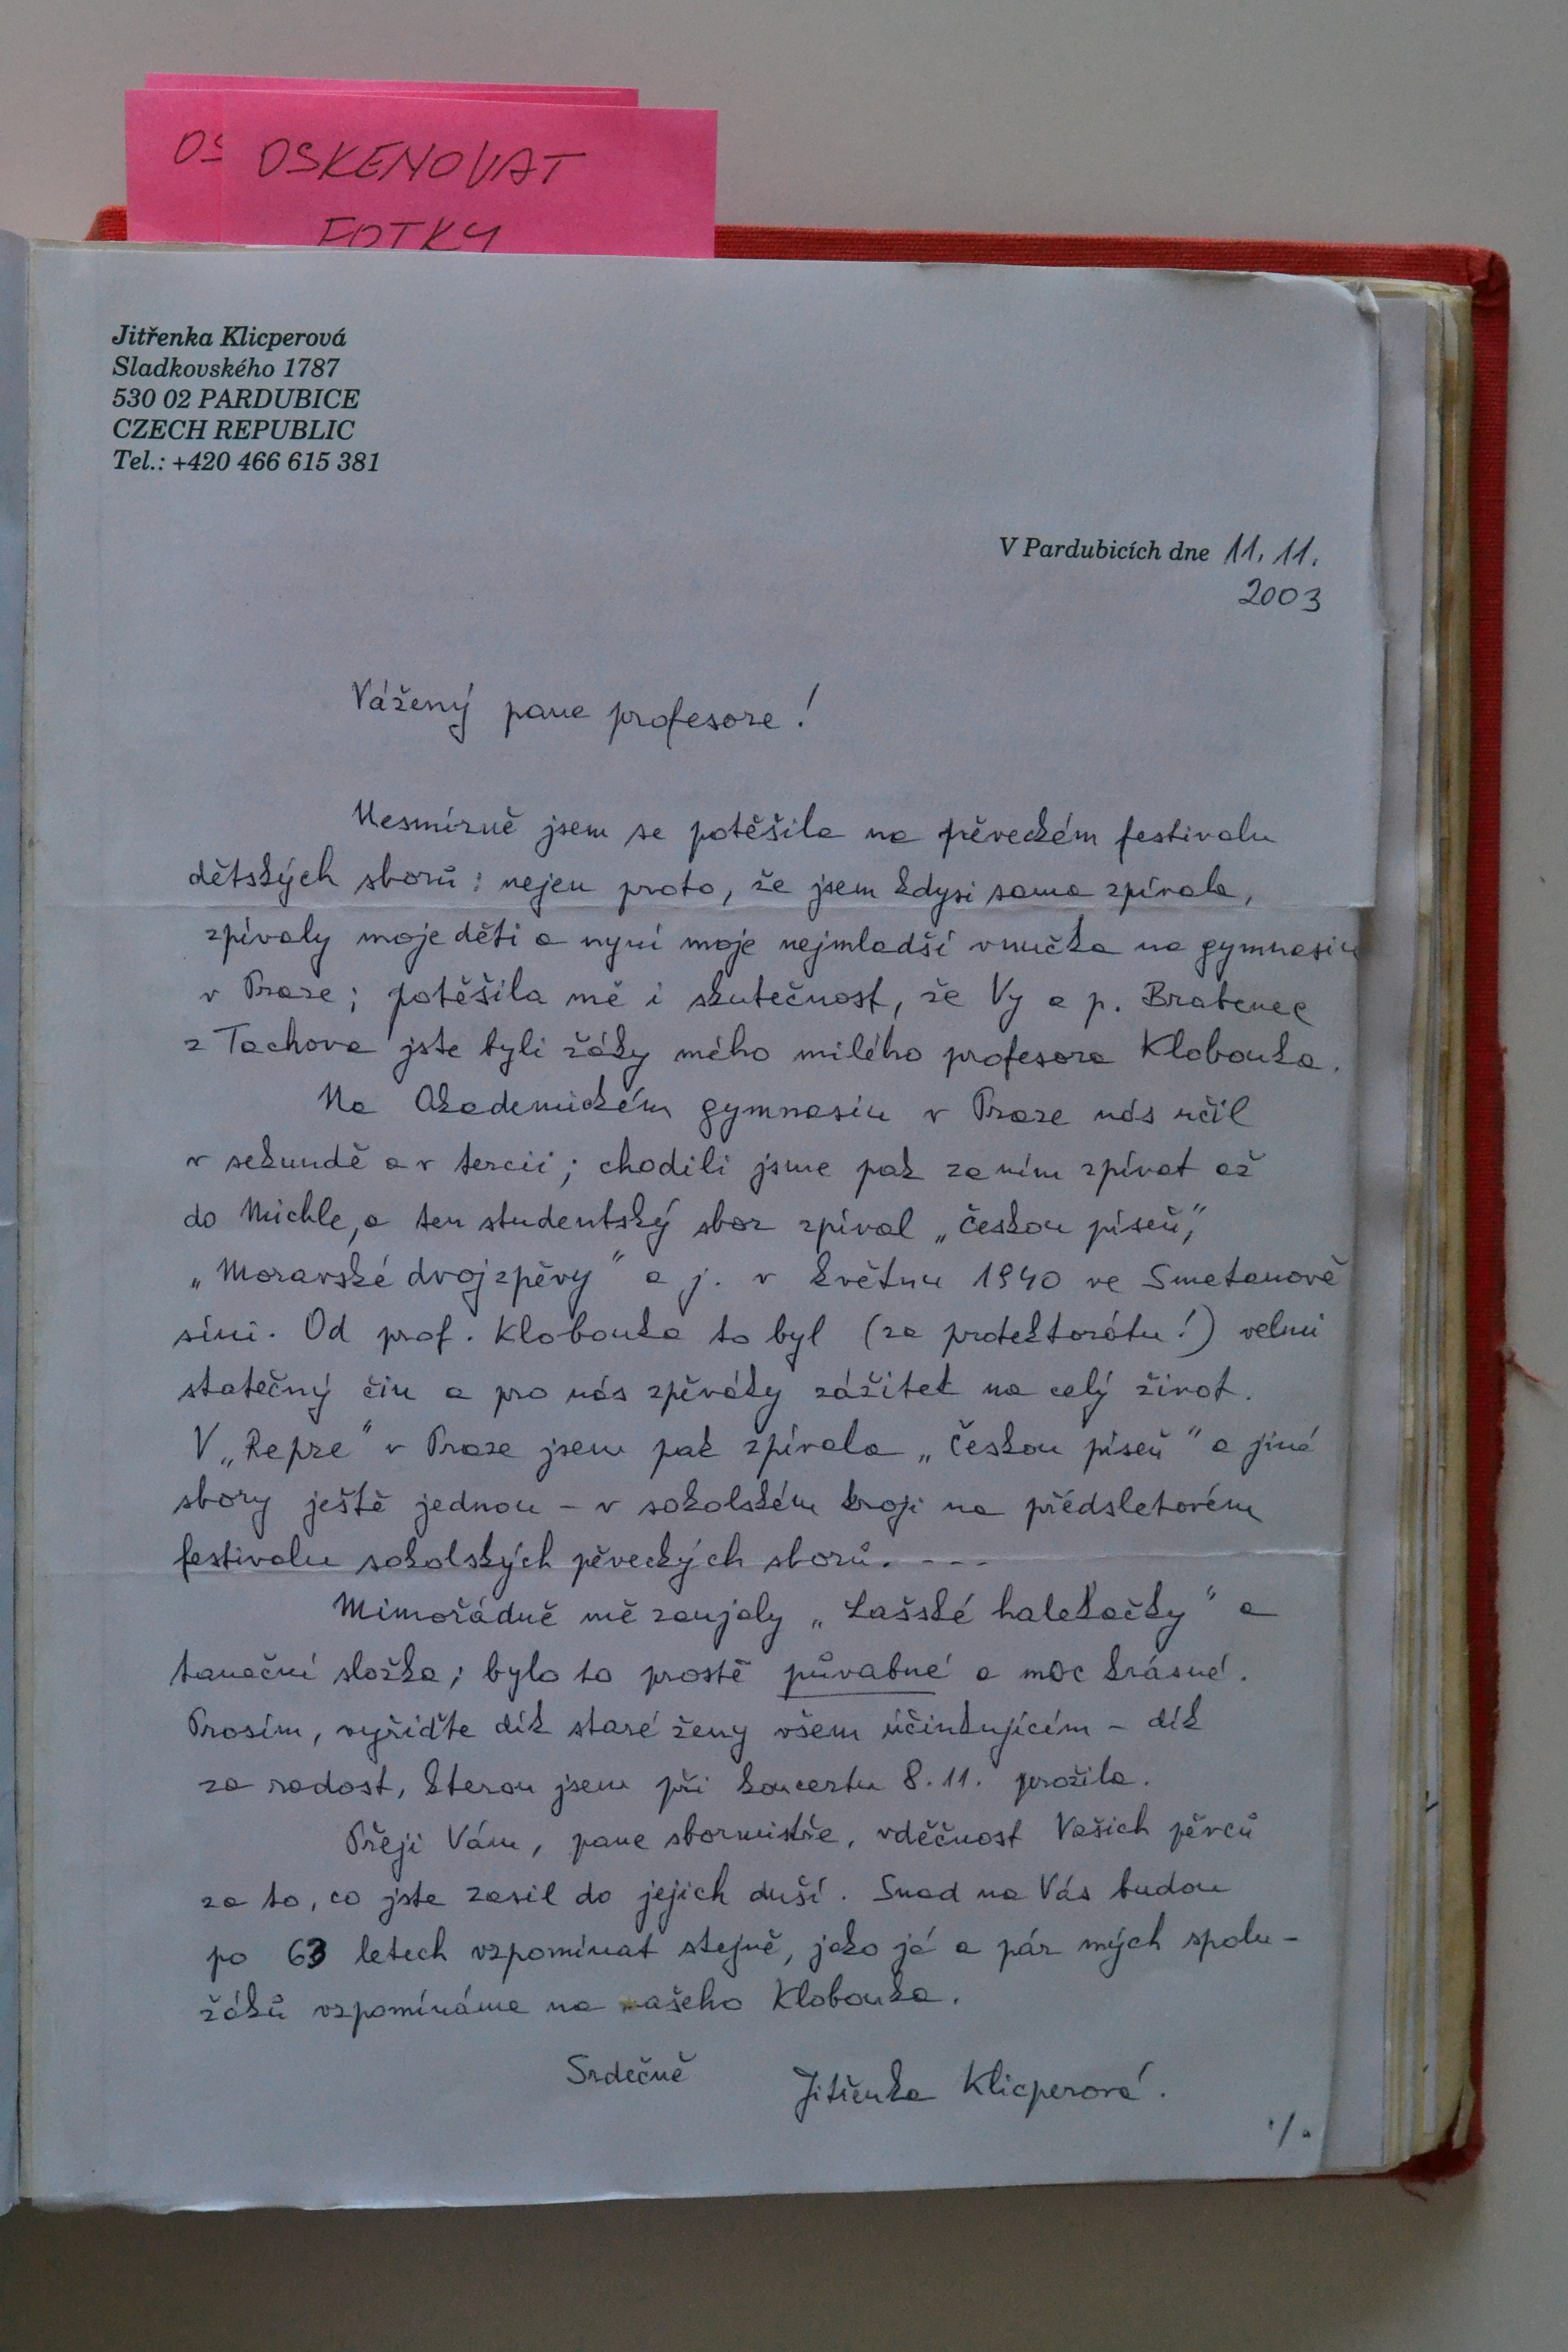 OS OSKENOVAT
FOTKY
Jitřenka Klicperová
Sladkovského 1787
530 02 PARDUBICE
CZECH REPUBLIC
Tel.: +420 466 615 381
V Pardubicích dne 11. 11.
2003
Vážený pane profesore!
Nesmírně jsem se potěšila na pěveckém festivalu
dětských sborů: nejen proto, že jsem kdysi sama zpívala,
zpívaly moje děti a nyní moje nejmladší vnučka na gymnasiu
v Praze; potěšila mě i skutečnost, že Vy a p. Bratenec
z Tachova jste byli žáky mého milého profesora Klobouka.
Na Akademickém gymnasiu v Praze nás učil
v sekundě a v tercii; chodili jsme pak za ním zpívat až
do Michle, a ten studentský sbor zpíval „Českou píseň",
„Moravské dvojzpěvy" a j. v květnu 1940 ve Smetanově
síni. Od prof. Klobouka to byl (za protektorátu!) velmi
statečný čin a pro nás zpěváky zážitek na celý život.
V „Repre" v Praze jsem pak zpívala „Českou píseň" a jiné
sbory ještě jednou – v sokolském kroji na předsletovém
festivalu sokolských pěveckých sborů. - - -
Mimořádně mě zaujaly „Lašské halekačky" a
taneční složka; bylo to prostě půvabné a moc krásné.
Prosím, vyřiďte dík staré ženy všem účinkujícím – dík
za radost, kterou jsem při koncertu 8. 11. prožila.
Přeji Vám, pane sbormistře, vděčnost Vašich pěvců
za to, co jste zasil do jejich duší. Snad na Vás budou
po 63 letech vzpomínat stejně, jako já a pár mých spolu-
žáků vzpomínáme na našeho Klobouka.
Srdečně Jitřenka Klicperová.
./.